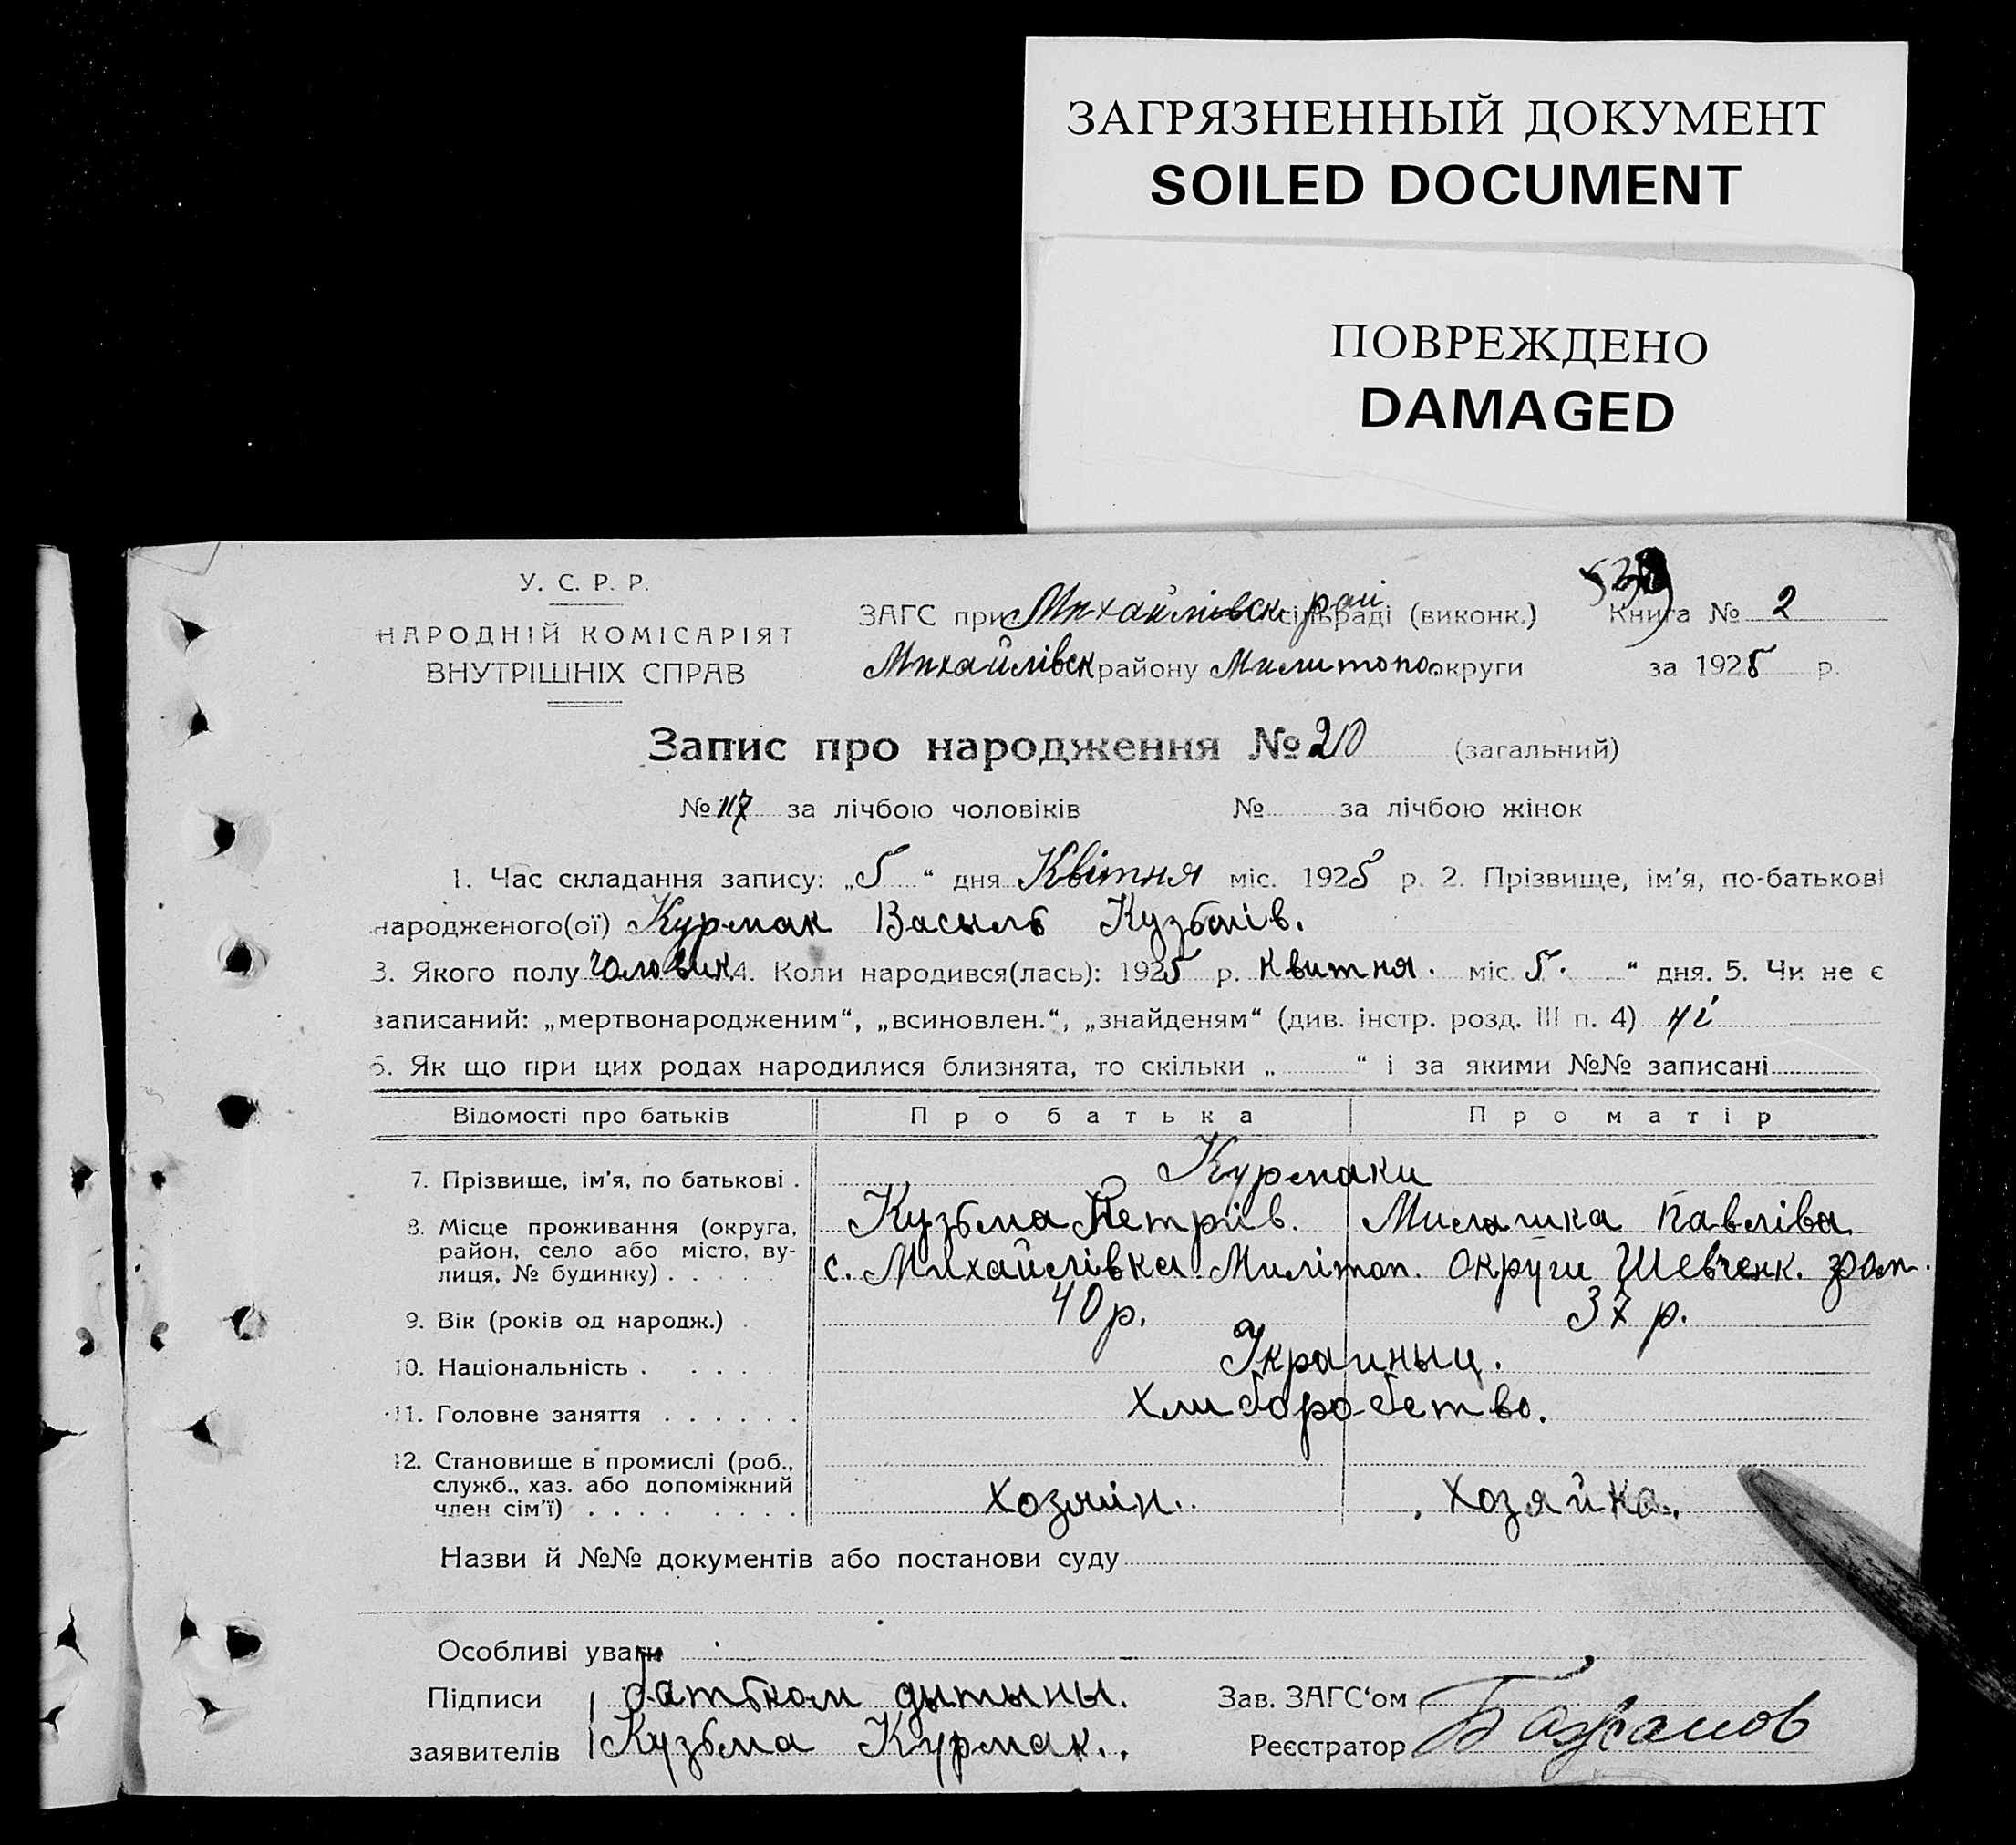 ЗАГРЯЗНЕННЫЙ ДОКУМЕНТ
SOILED DOCUMENT
ПОВРЕЖДЕНО
DAMAGED
У. С. Р. Р.
НАРОДНІЙ КОМІСАРІЯТ
ВНУТРІШНІХ СПРАВ
ЗАГС при Михайлівск рай сільраді (виконк.) Книга № 2
Михайлівск району Милитопо округи за 1925 р.
Запис про народження № 210 (загальний)
№ 117 за лічбою чоловіків № за лічбою жінок
1. Час складання запису: „5“ дня Квітня міс. 1925 р. 2. Прізвище, ім'я, по-батькові
народженого(ої) Курмак Васыль Кузьмів.
3. Якого полу чоловик 4. Коли народився(лась): 1925 р. квитня. міс 5. “ дня. 5. Чи не є
записаний: „мертвонародженим“, „всиновлен.“, „знайденям“ (див. інстр. розд. III п. 4) ні
6. Як що при цих родах народилися близнята, то скільки „ “ і за якими №№ записані
Відомості про батьків Про батька Про матір
7. Прізвище, ім'я, по батькові . Курмаки
Кузьма Петрів. Милашка Павліва
8. Місце проживання (округа, район, село або місто, ву-
лиця, № будинку) . . . . . с. Михайлівка. Милітоп. округи Шевченк.
9. Вік (років од народж.) . 40 р. 37 р.
10. Національність . . . . . Украиныц.
11. Головне заняття . . . . . . Хлиборобство.
12. Становище в промислі (роб.,
служб., хаз. або допоміжний
член сім'ї) . . . . . . . . Хозяїн. Хозяйка.
Назви й №№ документів або постанови суду
Особливі уваги
Підписи батьком дытыны. Зав. ЗАГС'ом
заявителів Кузьма Курмак. Реєстратор